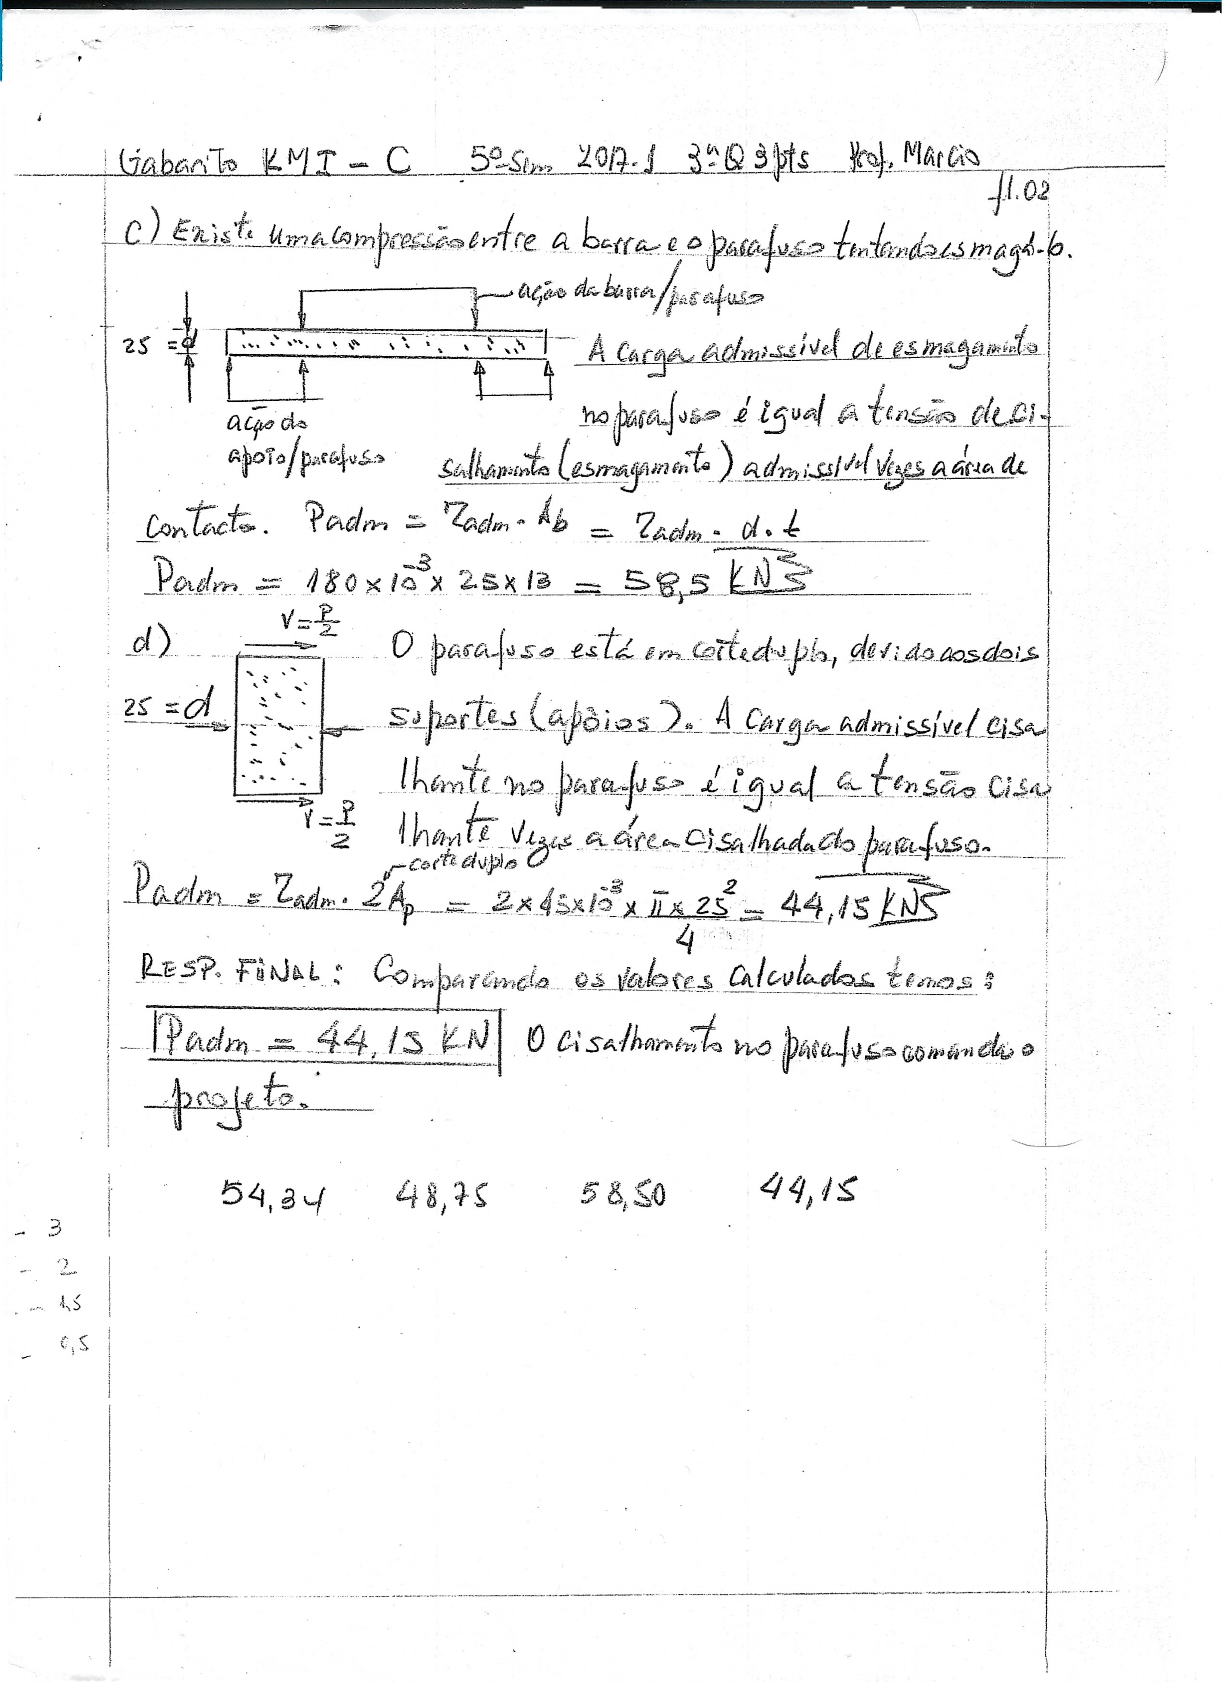 Gabarito KMI - C 5º Sem 2017.1 3ª Q 3 pts Prof. Marcio
fl.02
c) Existe uma compressão entre a barra e o parafuso tentando esmagá-lo.
ação da barra/parafuso
25 = d
A carga admissível de esmagamento
no parafuso é igual a tensão de ci-
ação do
apoio/parafuso
salhamento (esmagamento) admissível vezes a área de
contacto. Padm = Zadm . Ab = Zadm . d . t
Padm = 180 x 10^-3 x 25 x 13 = 58,5 KN
V = P/2
d) O parafuso está em corte duplo, devido aos dois
25 = d
suportes (apôios). A carga admissível cisa
lhante no parafuso é igual a tensão cisa
V = P/2
lhante vezes a área cisalhada do parafuso.
corte duplo
Padm = Zadm . 2Ap = 2 x 45 x 10^-3 x π x 25^2 / 4 = 44,15 KN
RESP. FINAL: Comparando os valores calculados temos:
Padm = 44,15 KN O cisalhamento no parafuso comanda o
projeto.
54,34 48,75 58,50 44,15
- 3
- 2
- 1,5
- 0,5